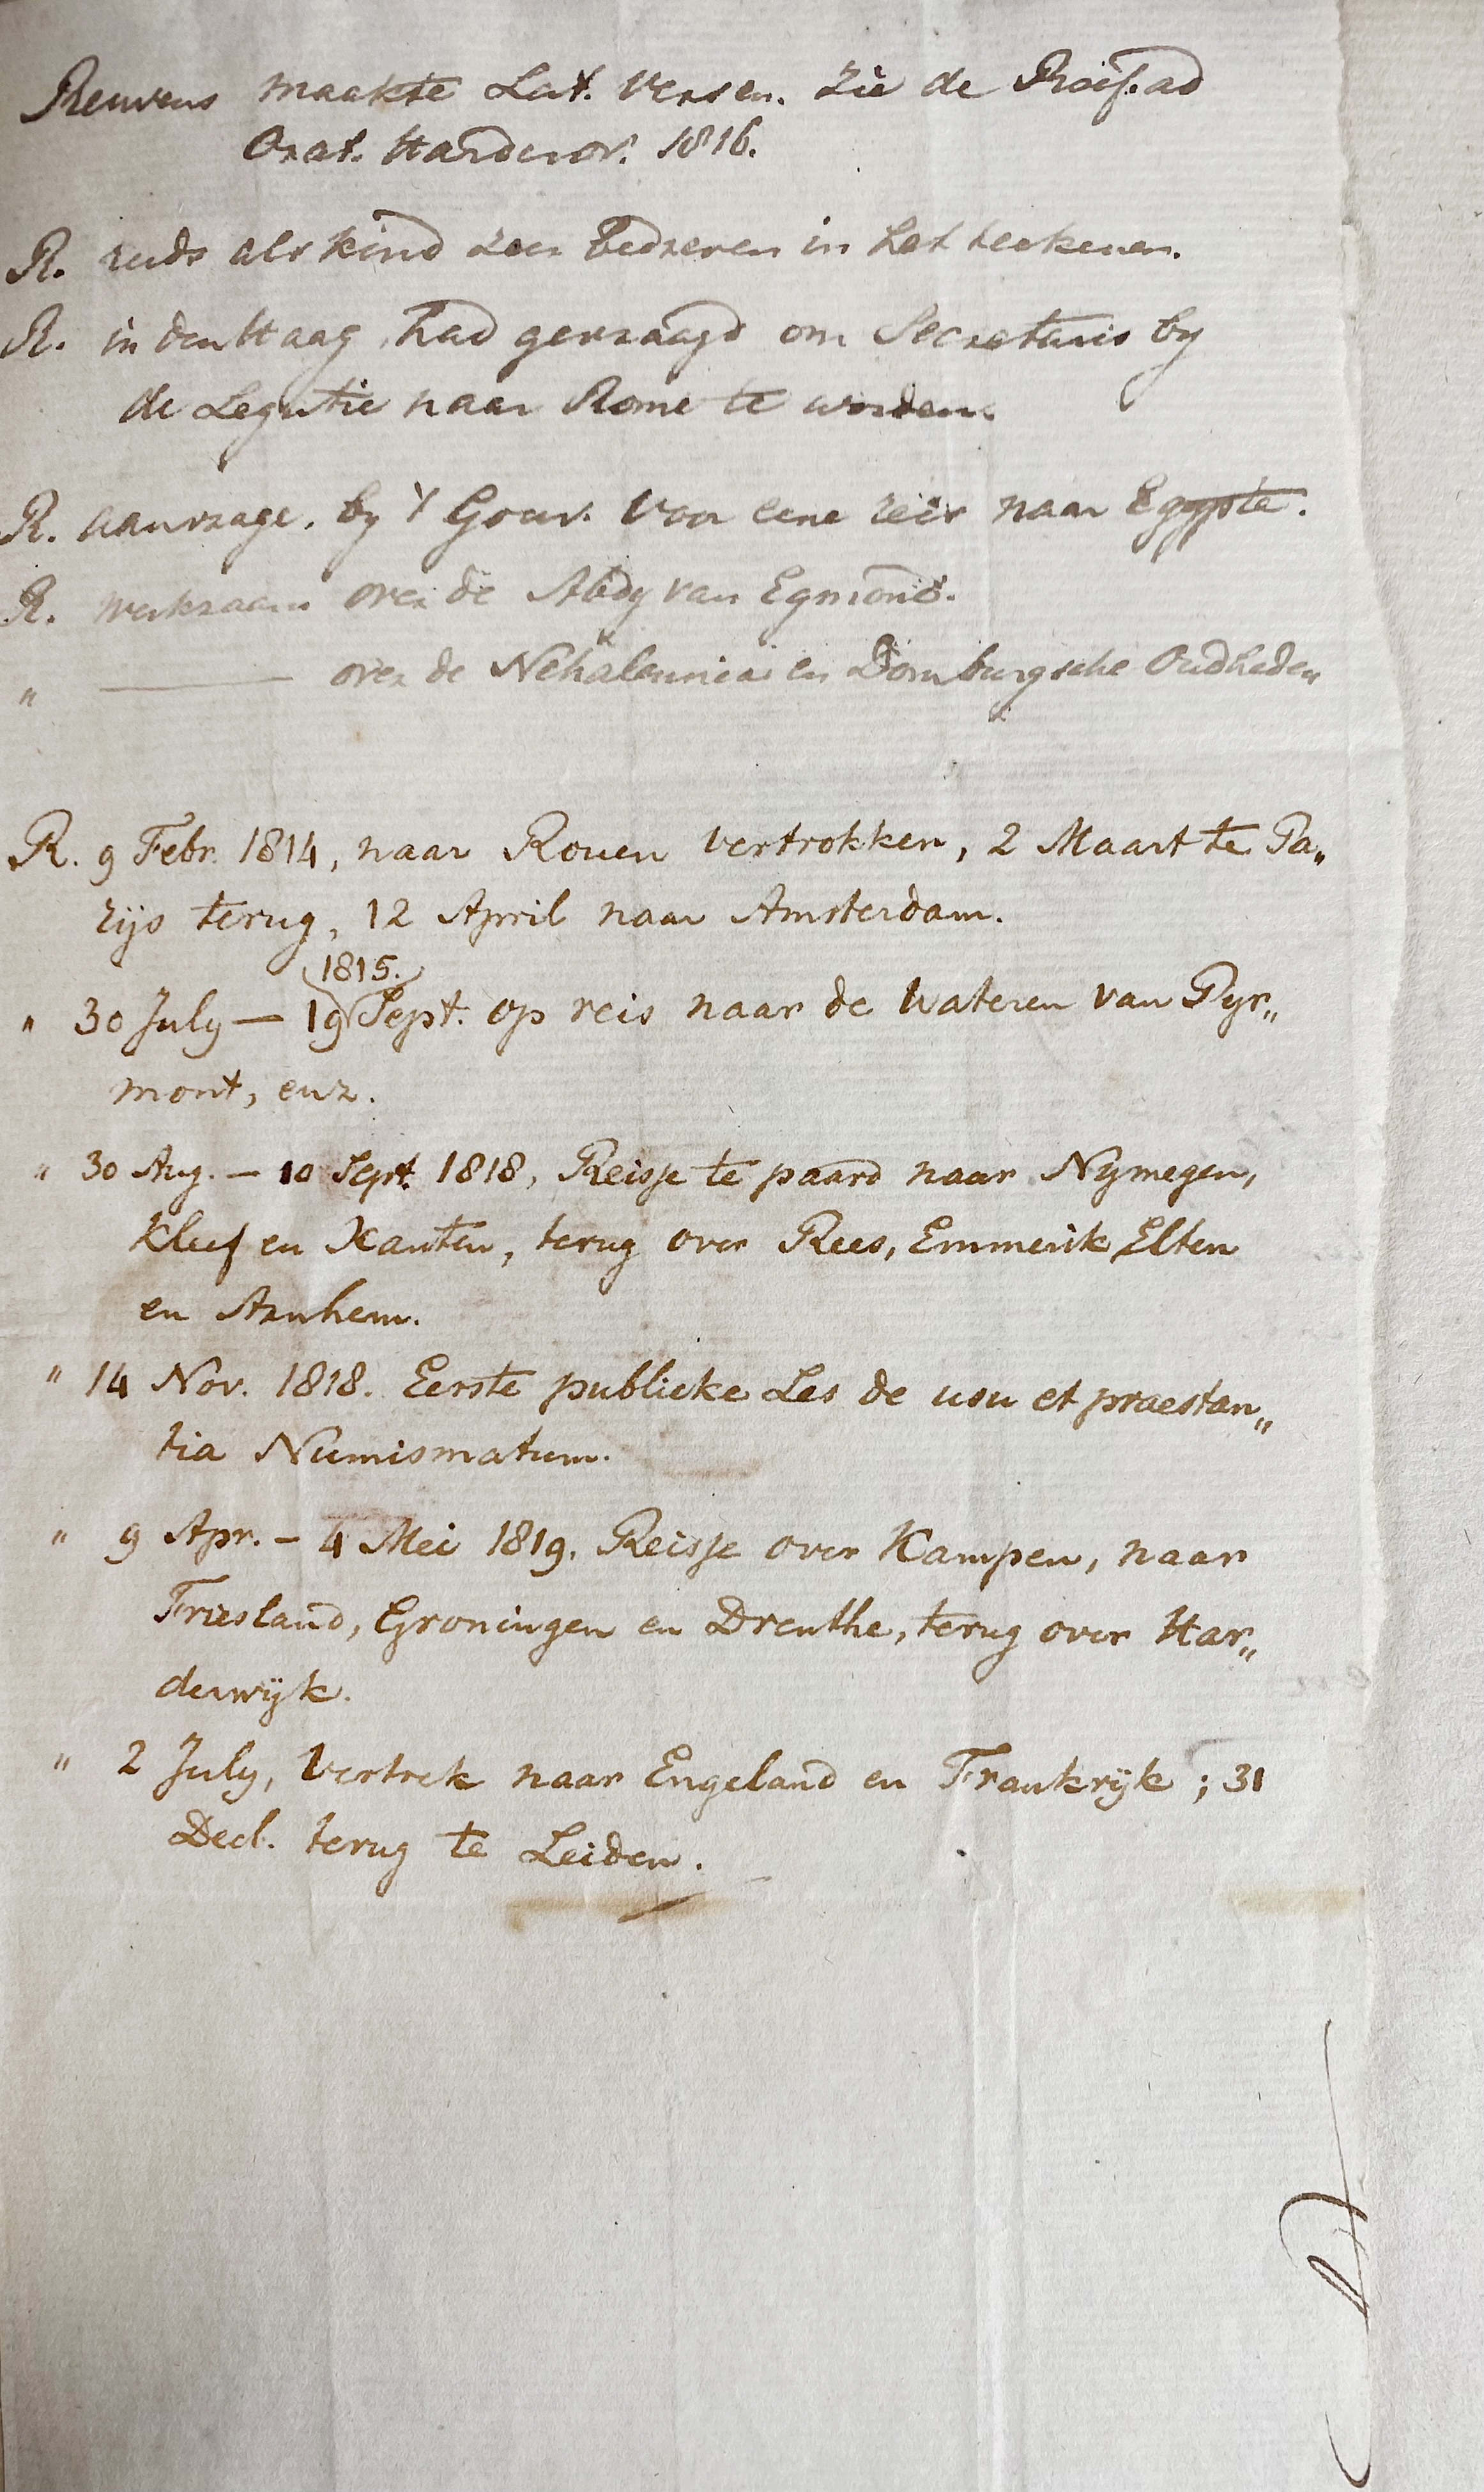 Reuvens maakte Lat. Versen. Zie de Præf. ad
Orat. Harderov. 1816.
R. reeds als kind zeer bedreven in het teekenen.
R. in den Haag, had gevraagd om Secretaris by
de Legatie naar Rome te worden.
R. aanvrage, by 't Gouv. voor eene reis naar Egypte.
R. werkzaam over de Abdy van Egmond.
" —— over de Nehalennia en Domburgsche Oudheden
R. 9 Febr. 1814, naar Rouen vertrokken, 2 Maart te Pa„
rijs terug, 12 April naar Amsterdam.
1815.
" 30 July — 19 Sept. op reis naar de Wateren van Pyr„
mont, enz.
" 30 Aug. — 10 Sept. 1818, Reisje te paard naar Nymegen,
Kleef en Xanten, terug over Rees, Emmerik, Elten
en Arnhem.
" 14 Nov. 1818. Eerste publieke Les de usu et praestan„
tia Numismatum.
" 9 Apr. — 4 Mei 1819. Reisje over Kampen, naar
Friesland, Groningen en Drenthe, terug over Har„
derwijk.
" 2 July, Vertrek naar Engeland en Frankrijk; 31
Decb. terug te Leiden.